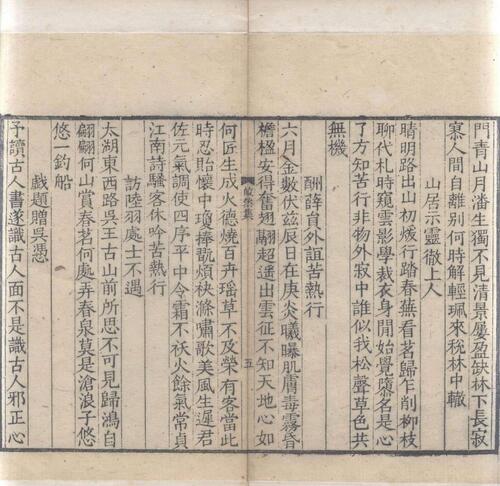 門青山月潘生獨不見清景屢盈缺林下長寂
寥人間自離別何時解輕珮來稅林中轍
山居示靈徹上人
晴明路出山初煖行踏春蕪看茗歸乍削柳枝
聊代札時窺雲影學裁衣身閒始覺隳名是心
了方知苦行非物外寂中誰似我松聲草色共
無機
酬薛員外誼苦熱行
六月金數伏茲辰日在庚炎曦曝肌膚毒霧昏
檐楹安得奮翅翮超遥出雲征不知天地心如
集 五
何匠生成火德燒百卉瑶草不及榮有客當此
時忍貽懷中瓊捧翫煩袂滌嘯歌美風生遲君
佐元氣調使四序平中令霜不袄火餘氣常貞
江南詩騷客休吟苦熱行
訪陸羽處士不遇
太湖東西路吳王古山前所思不可見歸鴻自
翩翩何山賞春茗何處弄春泉莫是滄浪子悠
悠一釣船
戲題贈吳憑
予讀古人書遂識古人面不是識古人邪正心